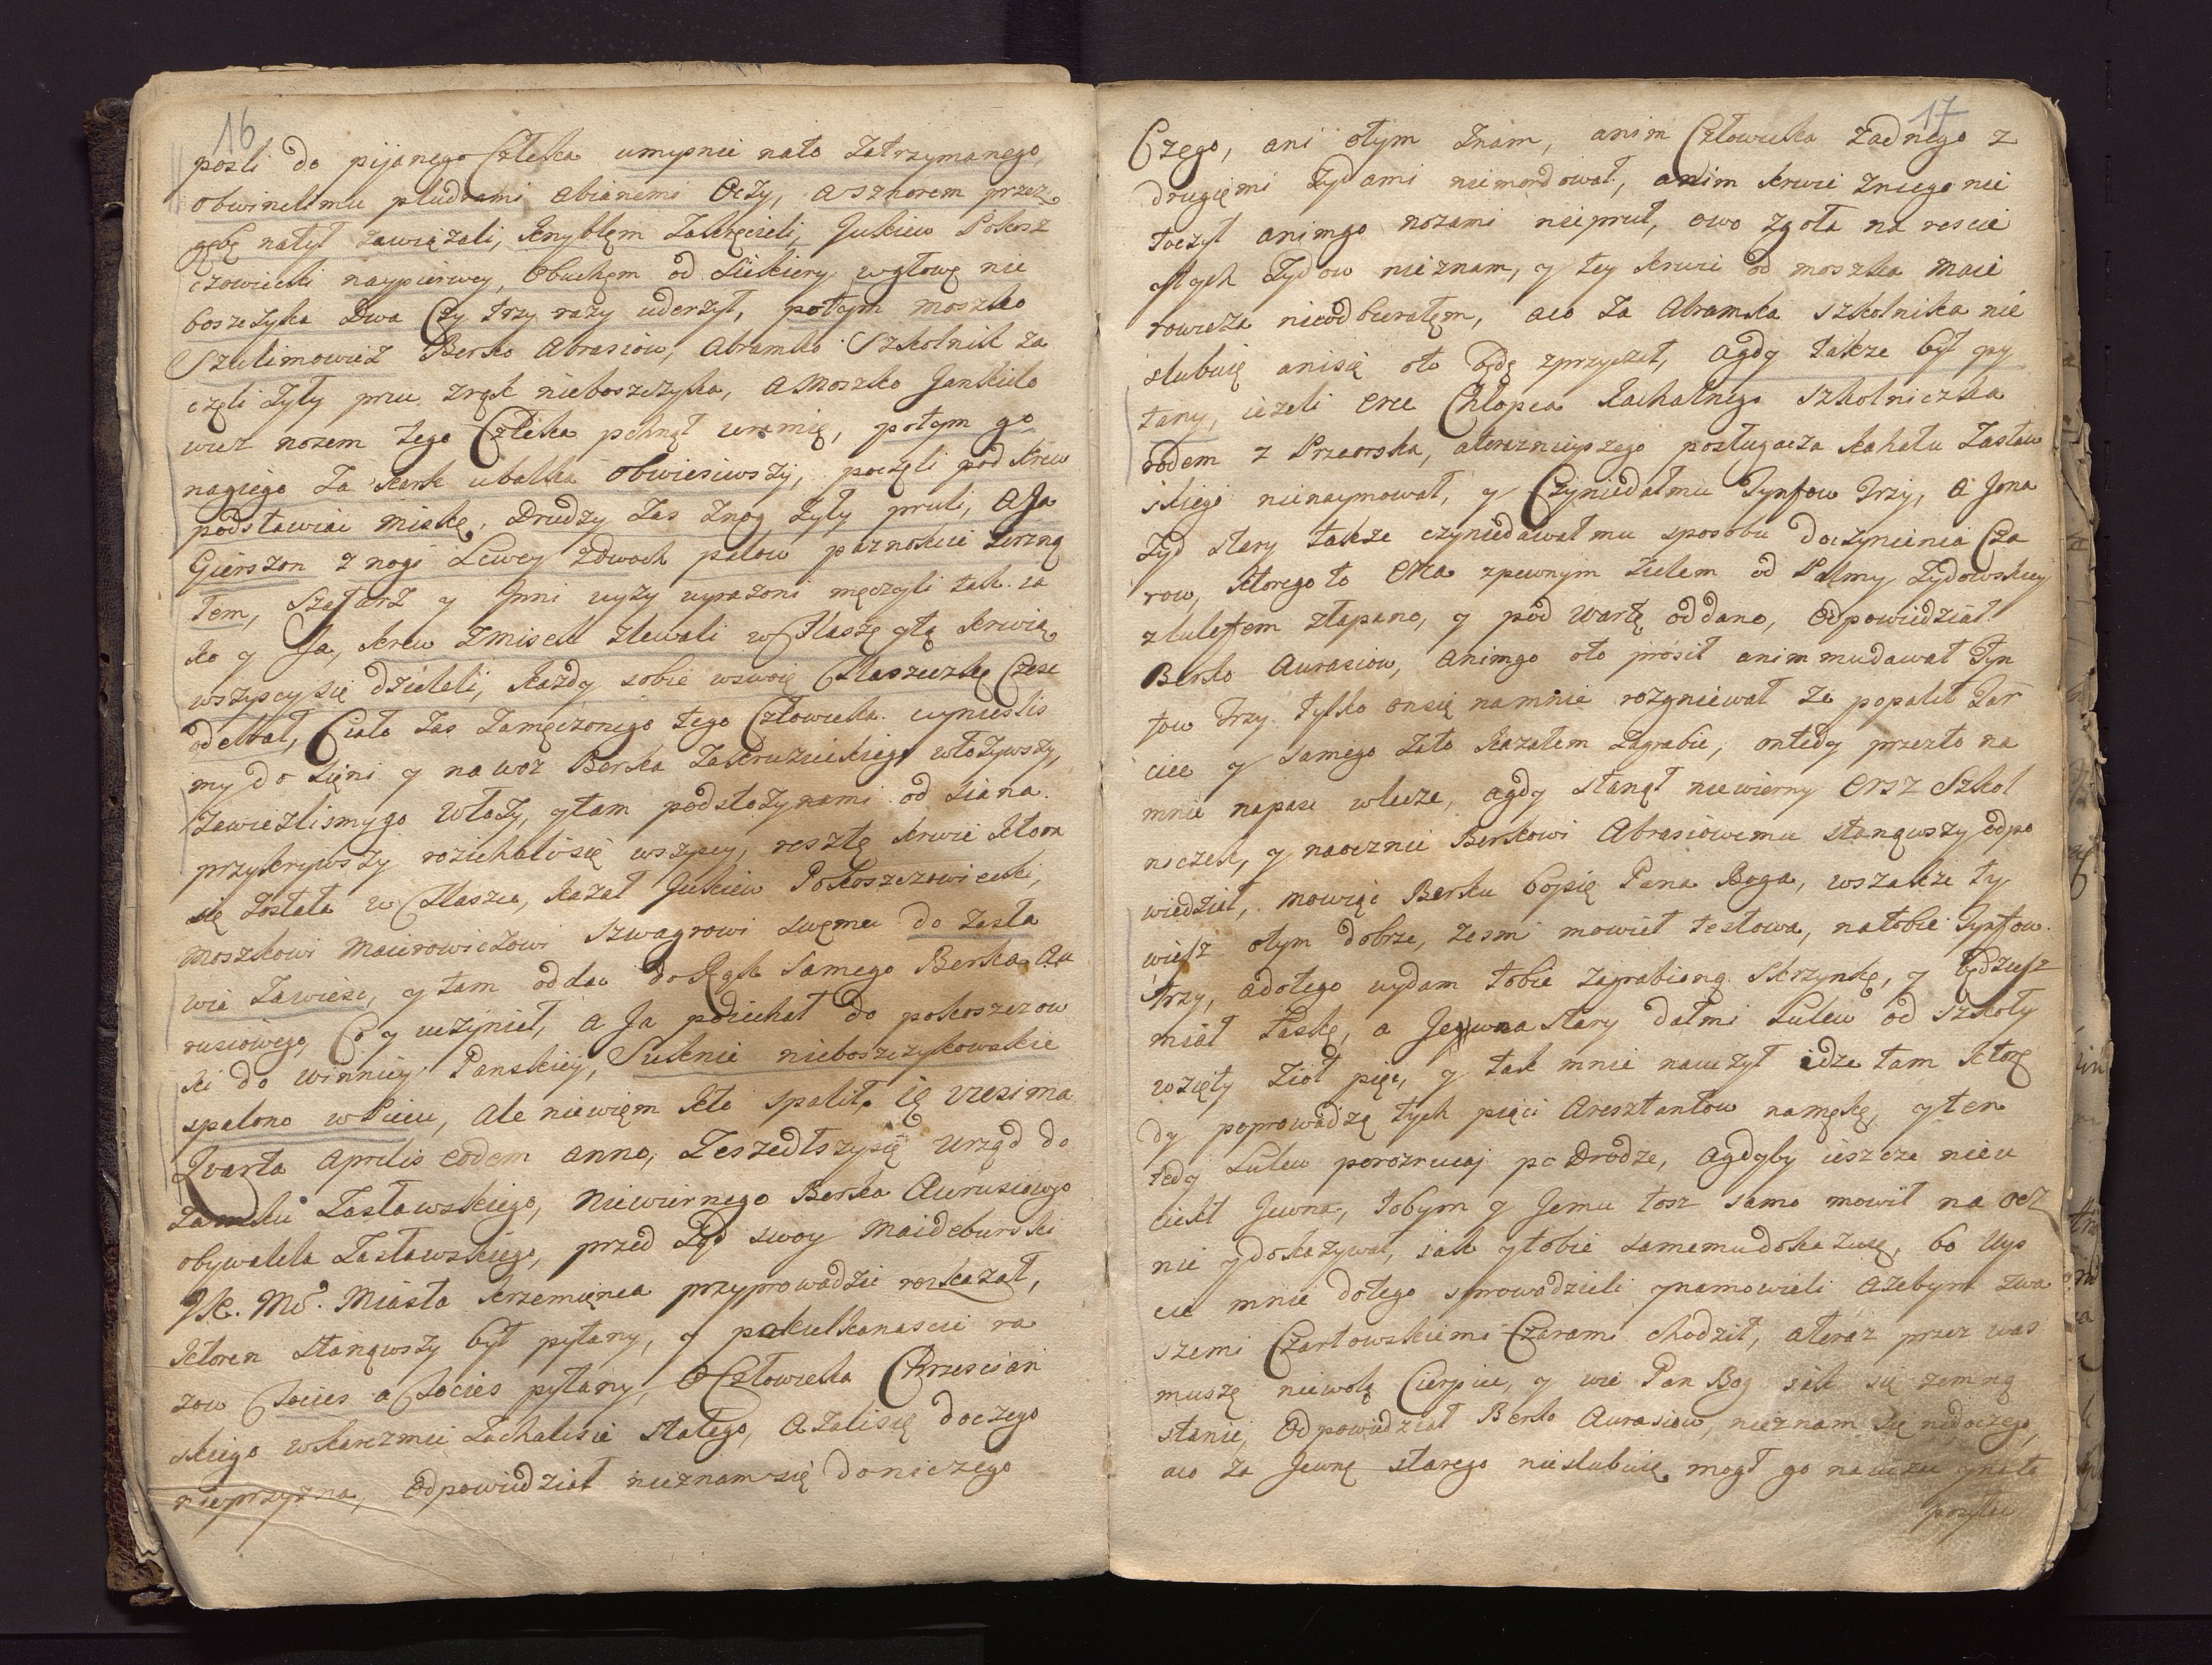 16
poszli do pijanego Człeka umyśnie nato zatrzymanego,
obwineli mu pludrami abianemi Oczy, a sznorem przez
gębę natył zawiązali, knyblęm zakręcieli, Jukiew Pokosz
czowiecki naypierwey, obuchęm od siekiery wgłowę nie
boszczyka Dwa Czy trzy razy uderzył, potym Moszko
Szulimowicz Berko Abrasiow, Abramko Szkolnik za
częli żyły pruc zrąk nieboszczyka, a Moszko Jankielo
wicz nozem tego Człeka pchnął wramię, potym go
nagiego za kark ubalka obwiesiwszy, poczęli pod krew
podstawiac miskę, Drudzy zas znog żyły pruli, a Ja
Gierszon z nogi Lewey zdwoch palow paznokcie zerzną
łem, Szafarz y Jnni wyzy wyrazoni męczyli tak. ia
ko y Ja, krew zmiseki zlewali w Flaszę ytą krwią
wszyscy się dzieleli, każdy sobie wswoię Flaszeczkę Częsc
odebrał, Ciało zas zamęczonego tego Człowieka wynieslis
my do sięni y na woz Berka Zakruzieckiego włożywszy,
zawiezlismy go włozy, y tam podsłożynami od siana
przykrywszy roziechalisię wszyscy, resztę krwie ktora
się została w Flaszce, kazał Jukiew Pokoszczowiecki,
Moszkowi Maierowiczowi szwagrowi swęmu do Zasła
wia zawiesc, y tam oddac do Rąk samego Berka Au
rusiowego, Co y uczynieł, a Ja poiechał do pokoszczow
ki do winnicy Panskiey, Suknie nieboszczykowskie
spalono wPiecu, ale niewięm kto spalił. Ię vicesima
Qvarta Aprilis eodem anno, Zeszedłszysię Urząd do
Zamku Zasławskiego, Niewiernego Berka Aurusiowego
obywatela Zasławskiego, przed Sąd swoy Maideburski
JK. Mci. Miasta Krzemięnca przyprowadzic roskazał,
ktoren stanąwszy był pytany, y po kielkanascie ra
zow toties a toties pytany, O Człowieka Chrzescian
skiego wkarczmie Zachalisie stałego, Azalisię doczego
nieprzyzna, odpowiedział nieznamsię do niczego
17
Czego, ani otym znam, anim Człowieka żadnego z
drugięmi Żydami niemordował, anim krwie zniego nie
toczył animgo nozami niepruł, owo zgoła na rescie
ytych Żydow nieznam, y tey krwie od Moszka Maie
rowicza nieodbierałęm, aco za Abramka Szkolnika nie
slubuię anisię oto będę zprzyczał, agdy także był py
tany, ieżeli Erce Chłopca Kachalnego Szkolniczka
rodem z Przeorska, ateraznieyszego posługacza kahału Zasław
skiego nienaymował, y Czyniedałmu Tynfow Trzy, a Jona
Żyd stary także czyniedawał mu sposobu doczynienia Cza
row, ktorego to Erka zpewnym zielem od Palmy Żydowskiey
złulefem złapano, y pod wartę oddano, odpowiedział
Berko Aurasiow, animgo oto prosił anim mudawał Tyn
fow Trzy. tylko onsię namnie rozgniewał ze popalił Zar
cicc y samego zato kazałem zagrabic, ontedy przezto na
mnie napasc wlecze, agdy stanął niewierny Ersz Szkol
niczek, y naocznie Berkowi Abrasiowemu stanąwszy odpo
wiedział, mowiąc Berku boysię Pana Boga, wszakże ty
wiesz otym dobrze, zesmi mowieł tesłowa, natobie Tynfow.
Trzy, adotego wydam tobie zagrabioną Skrzynkę, y będziesz
miał Łaskę, a Jewna stary dałmi Lulew od Szkoły
wzięty zioł pięc, y tak mnie nauczył idze tam ktorę
dy poprowadzą tych pięci Aresztantow namękę, yten
tedy Lulew porozrucay po Drodze, agdyby ieszcze nieu
ciekł Jewna, tobym y Jemu tosz samo mowił na ocz
nie ydokazywał, iak ytobie samemudokazuię, bo wys
cie mnie dotego sprowadzieli ynamowieli azebym zwa
szemi Czartowskiemi Czarami chodził, ateraz przez was
muszę niewolą Cierpiec, y wie Pan Bog iak się zemną
stanie, Odpowiedział Berko Aurasiow, nieznam się nadoczego,
aco za Jewnę starego nieslubuię mogł go nauczyc ynato